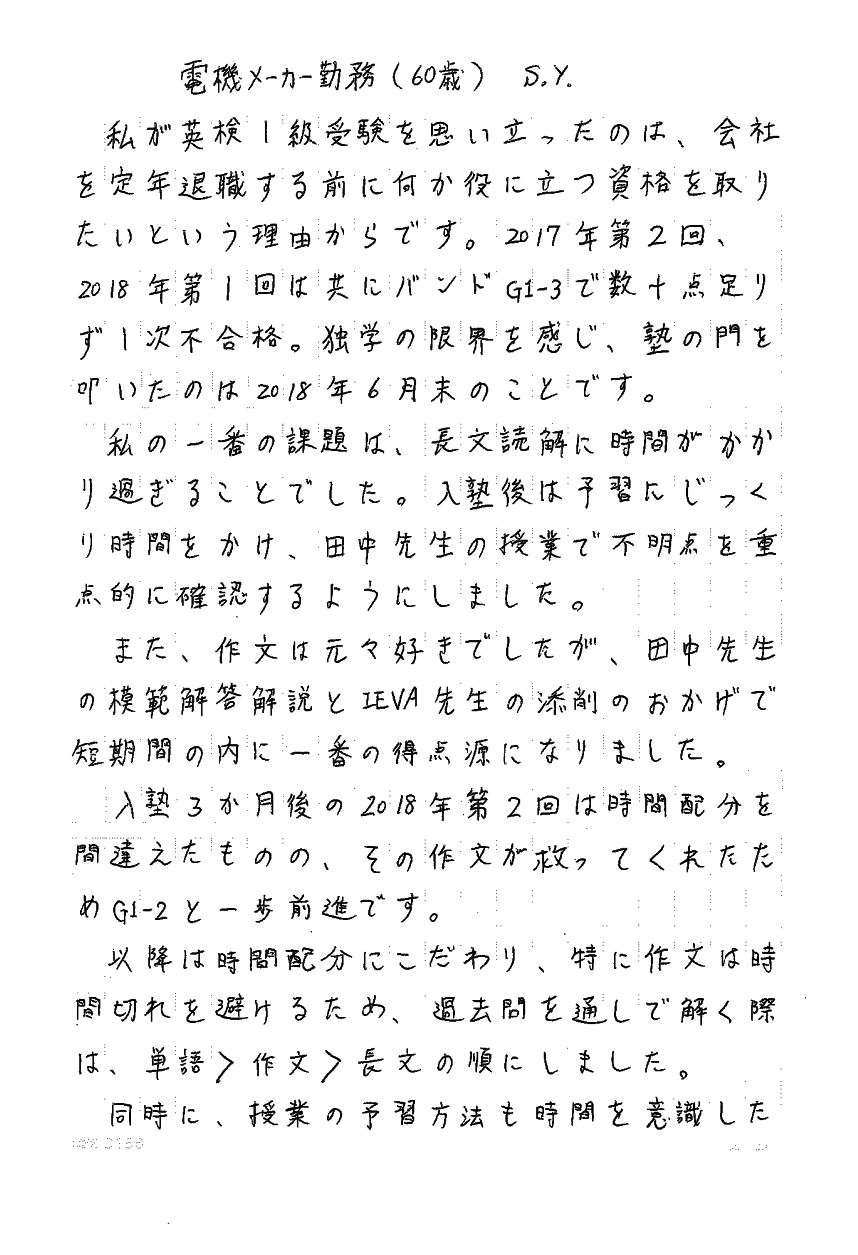 電機メーカー勤務(60歳) S.Y.
私が英検1級受験を思い立ったのは、会社
を定年退職する前に何か役に立つ資格を取り
たいという理由からです。2017年第2回、
2018年第1回は共にバンドG1-3で数十点足り
ず1次不合格。独学の限界を感じ、塾の門を
叩いたのは2018年6月末のことです。
私の一番の課題は、長文読解に時間がかか
り過ぎることでした。入塾後は予習にじっく
り時間をかけ、田中先生の授業で不明点を重
点的に確認するようにしました。
また、作文は元々好きでしたが、田中先生
の模範解答解説とIEVA先生の添削のおかげで
短期間の内に一番の得点源になりました。
入塾3か月後の2018年第2回は時間配分を
間違えたものの、その作文が救ってくれたた
めG1-2と一歩前進です。
以降は時間配分にこだわり、特に作文は時
間切れを避けるため、過去問を通しで解く際
は、単語>作文>長文の順にしました。
同時に、授業の予習方法も時間を意識した